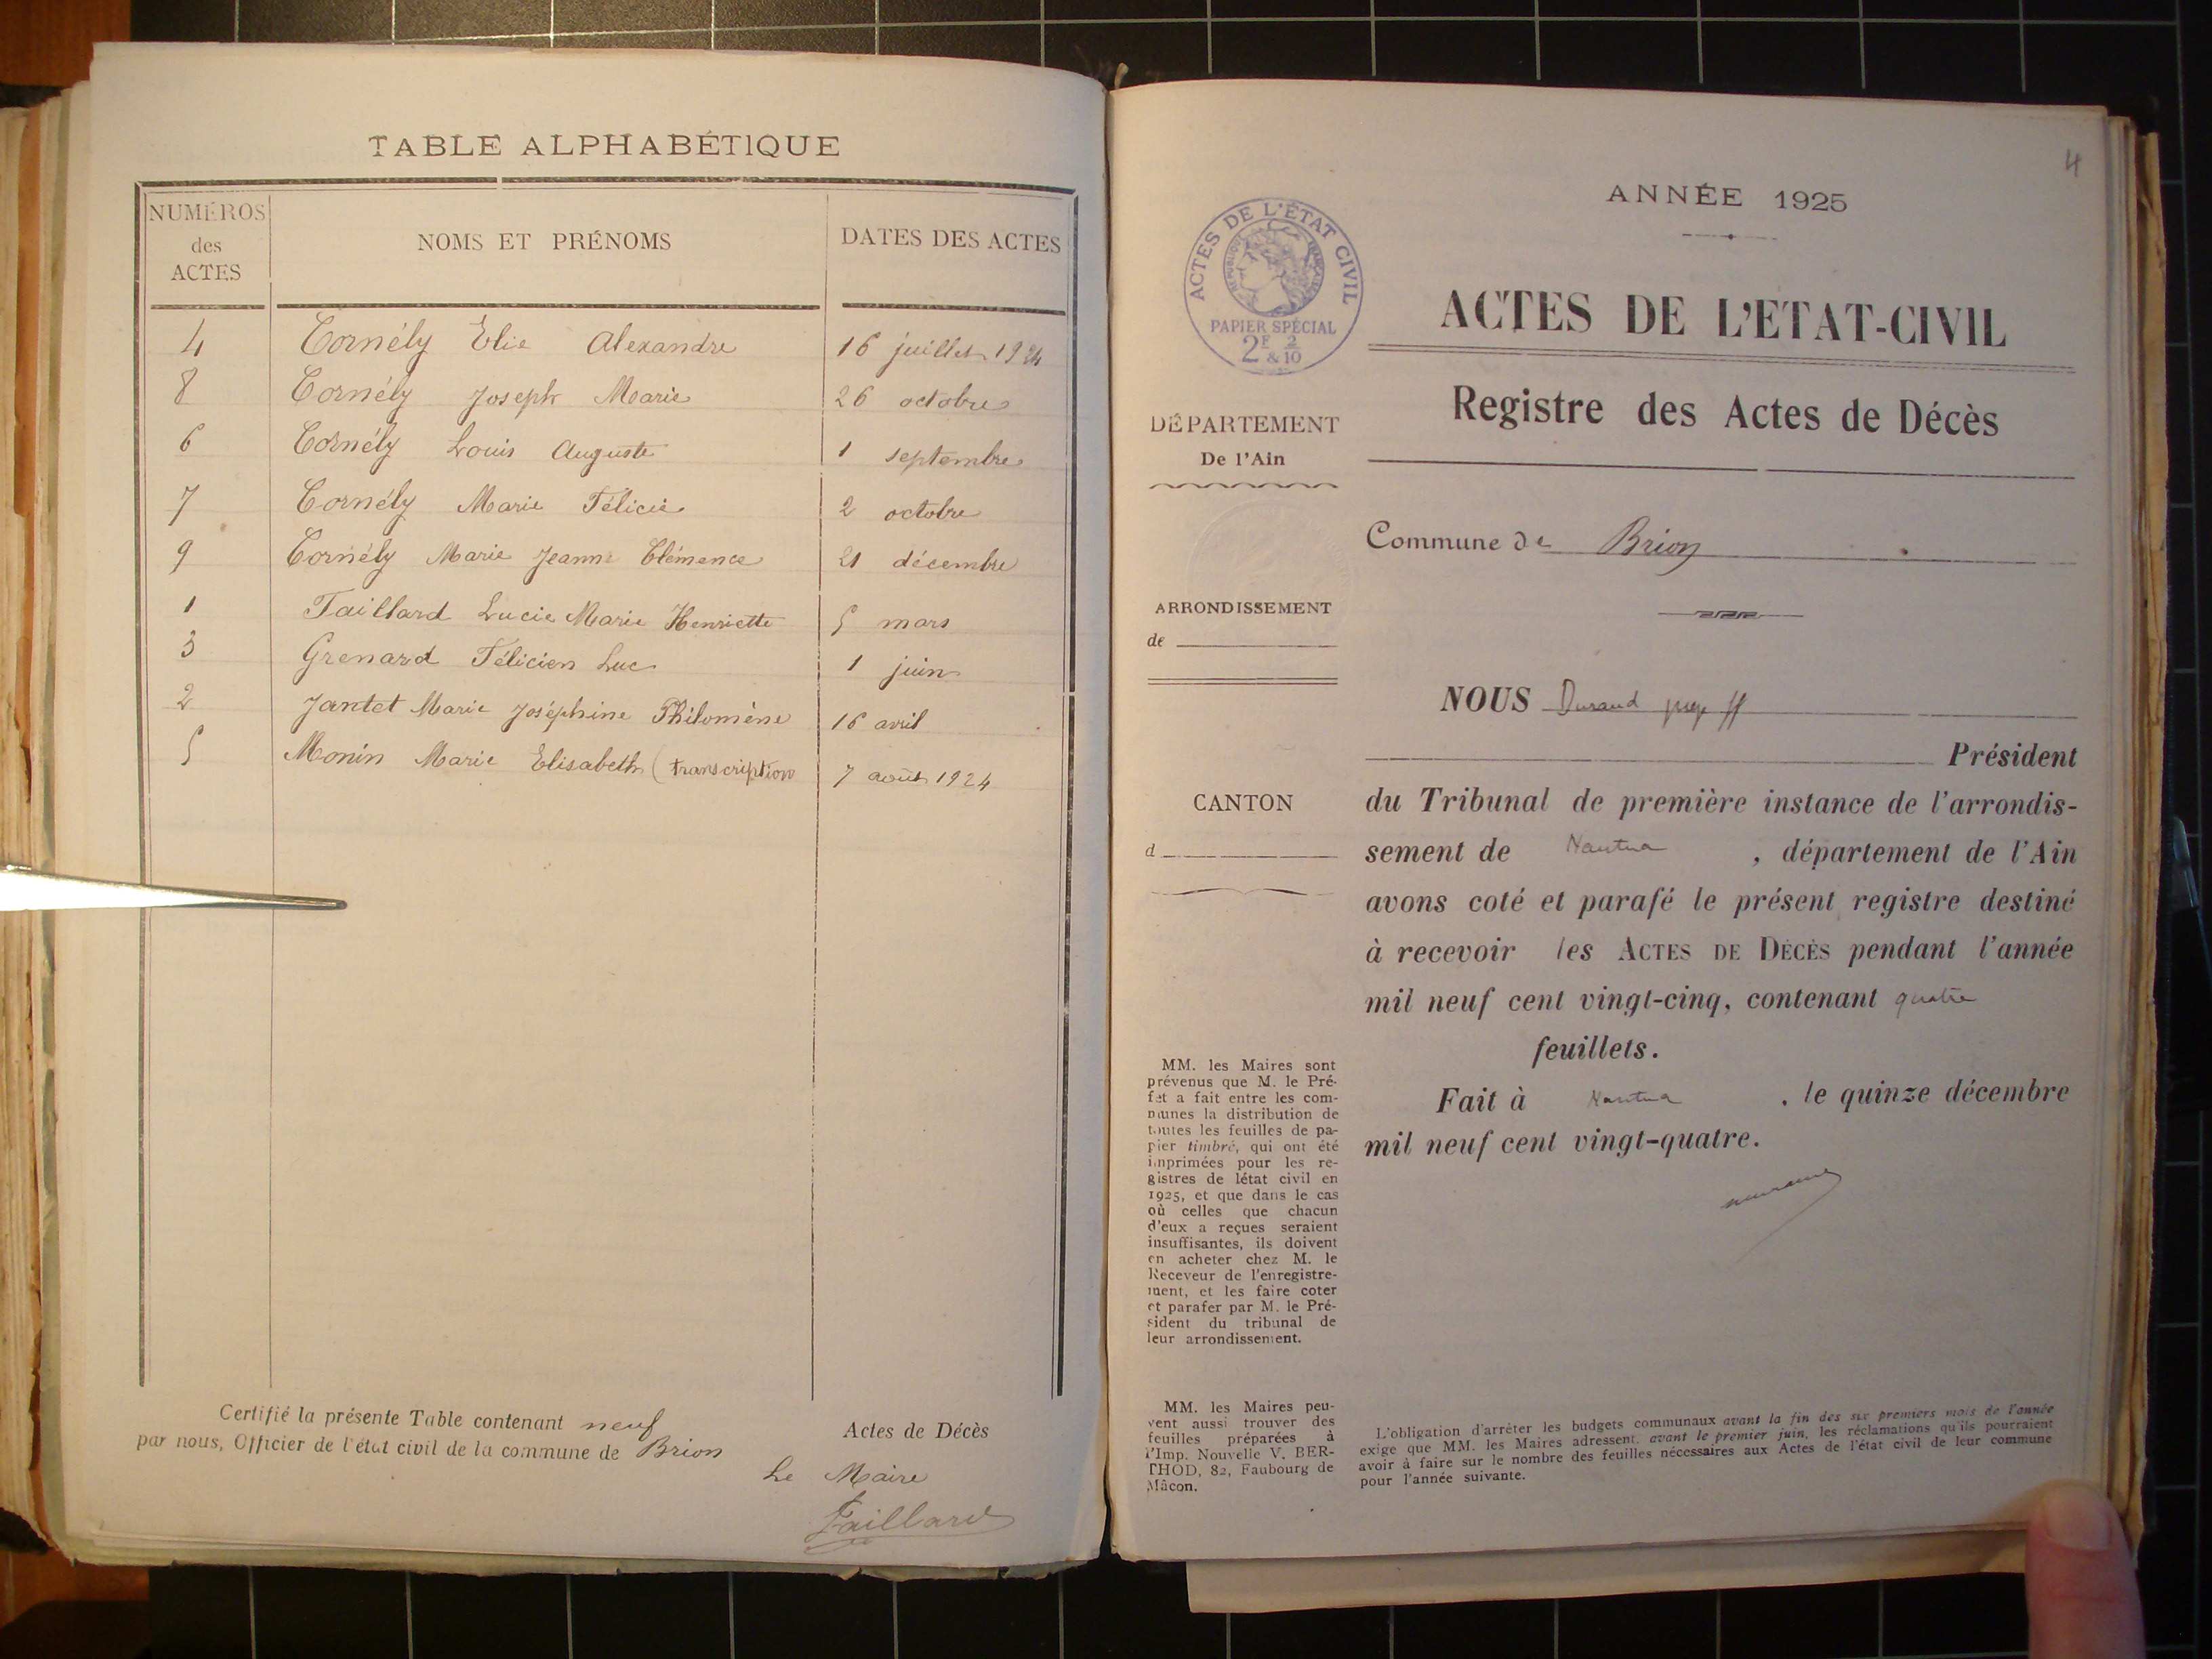 TABLE ALPHABÉTIQUE
NUMÉROS
des
ACTES
NOMS ET PRÉNOMS
DATES DES ACTES
4 Cornély Élie Alexandre 16 juillet 1924
8 Cornély Joseph Marie 26 octobre
6 Cornély Louis Auguste 1 septembre
7 Cornély Marie Félicie 2 octobre
9 Cornély Marie Jeanne Clémence 21 décembre
1 Faillard Lucie Marie Henriette 5 mars
3 Grenard Félicien Luc 1 juin
2 Jantet Marie Joséphine Philomène 16 avril
5 Monin Marie Elisabeth (transcription 7 août 1924
Certifié la présente Table contenant neuf Actes de Décès
par nous, Officier de l'état civil de la commune de Brion
Le Maire
Faillard
4
ANNÉE 1925
ACTES DE L'ÉTAT CIVIL
RÉPUBLIQUE FRANÇAISE
PAPIER SPÉCIAL
2F 2
& 10
ACTES DE L'ETAT-CIVIL
Registre des Actes de Décès
DÉPARTEMENT
De l'Ain
Commune de Brion
ARRONDISSEMENT
de
CANTON
d
NOUS Durand juge ff
Président
du Tribunal de première instance de l'arrondis-
sement de Nantua , département de l'Ain
avons coté et parafé le présent registre destiné
à recevoir les ACTES DE DÉCÈS pendant l'année
mil neuf cent vingt-cinq, contenant quatre
feuillets.
Fait à Nantua , le quinze décembre
mil neuf cent vingt-quatre.
MM. les Maires sont
prévenus que M. le Pré-
fet a fait entre les com-
munes la distribution de
toutes les feuilles de pa-
pier timbré, qui ont été
imprimées pour les re-
gistres de létat civil en
1925, et que dans le cas
où celles que chacun
d'eux a reçues seraient
insuffisantes, ils doivent
en acheter chez M. le
Receveur de l'enregistre-
ment, et les faire coter
et parafer par M. le Pré-
sident du tribunal de
leur arrondissement.
MM. les Maires peu-
vent aussi trouver des
feuilles préparées à
l'Imp. Nouvelle V. BER-
THOD, 82, Faubourg de
Mâcon.
L'obligation d'arrêter les budgets communaux avant la fin des six premiers mois de l'année
exige que MM. les Maires adressent, avant le premier juin, les réclamations qu'ils pourraient
avoir à faire sur le nombre des feuilles nécessaires aux Actes de l'état civil de leur commune
pour l'année suivante.